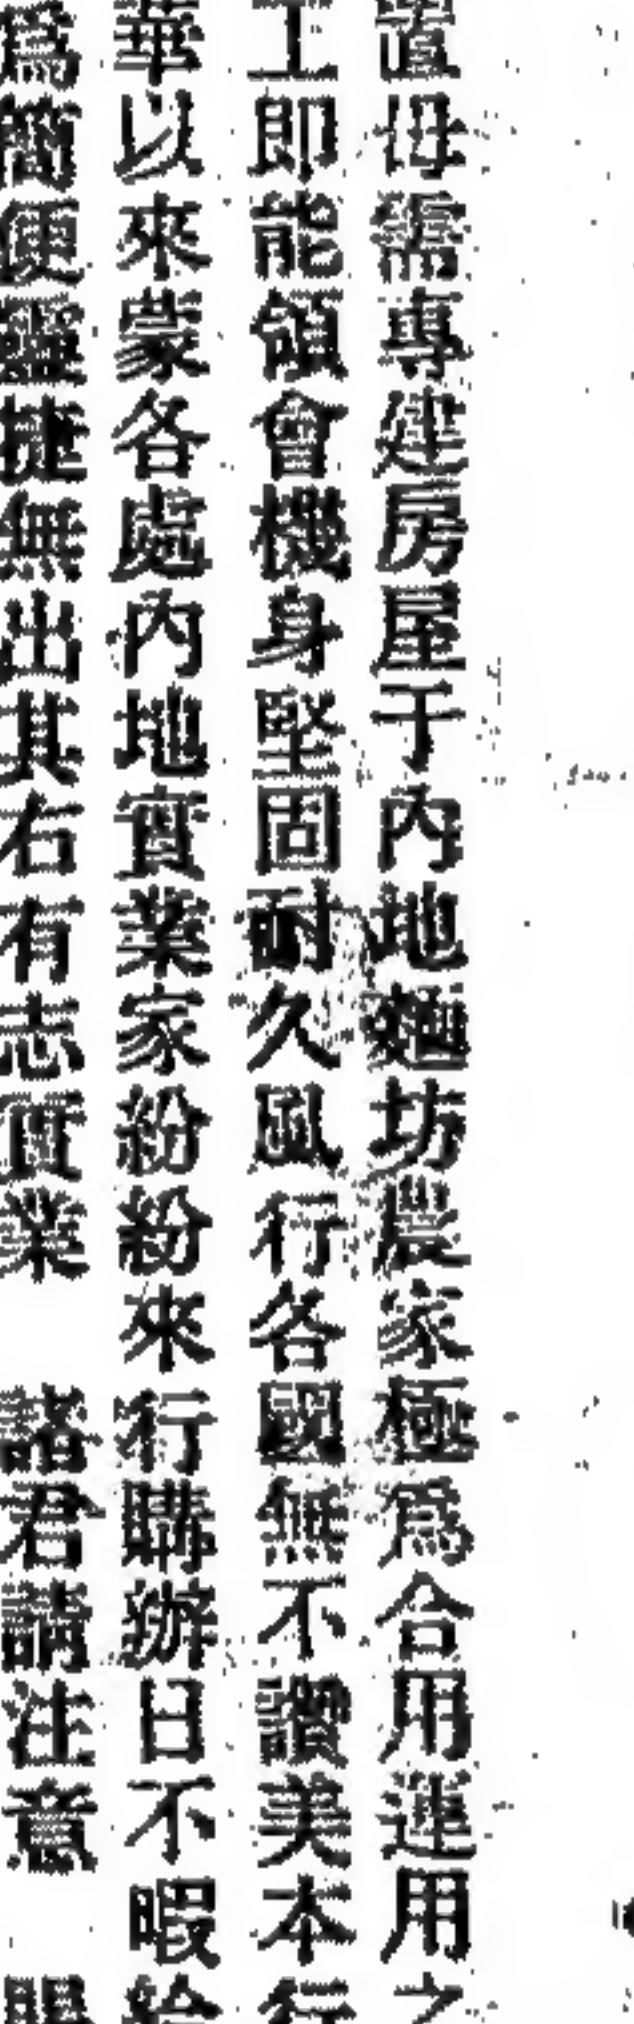 置毋需專建房屋于內地麵坊農家極爲合用運用之
工即能領會機身堅固耐久風行各國無不讚美本行
華以來蒙各處內地實業家紛紛來行購辦日不暇給
爲簡便輕捷無出其右有志實業 諸君請注意